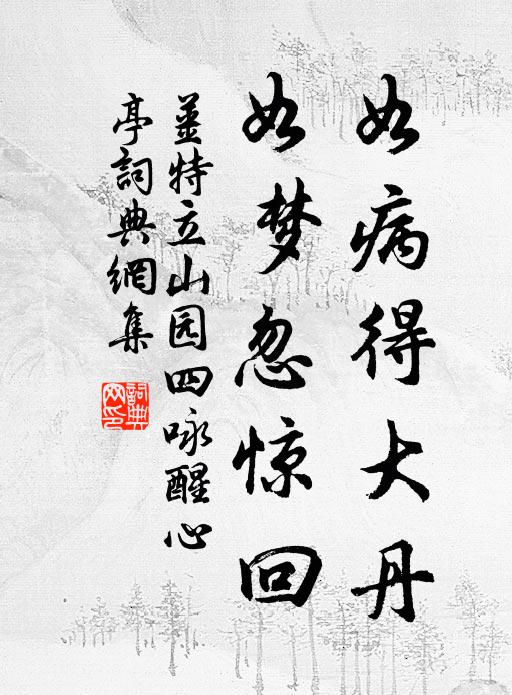 如病得大丹
如梦忽惊回
姜特立山园四咏醒心
亭詞典網集
詞典網印